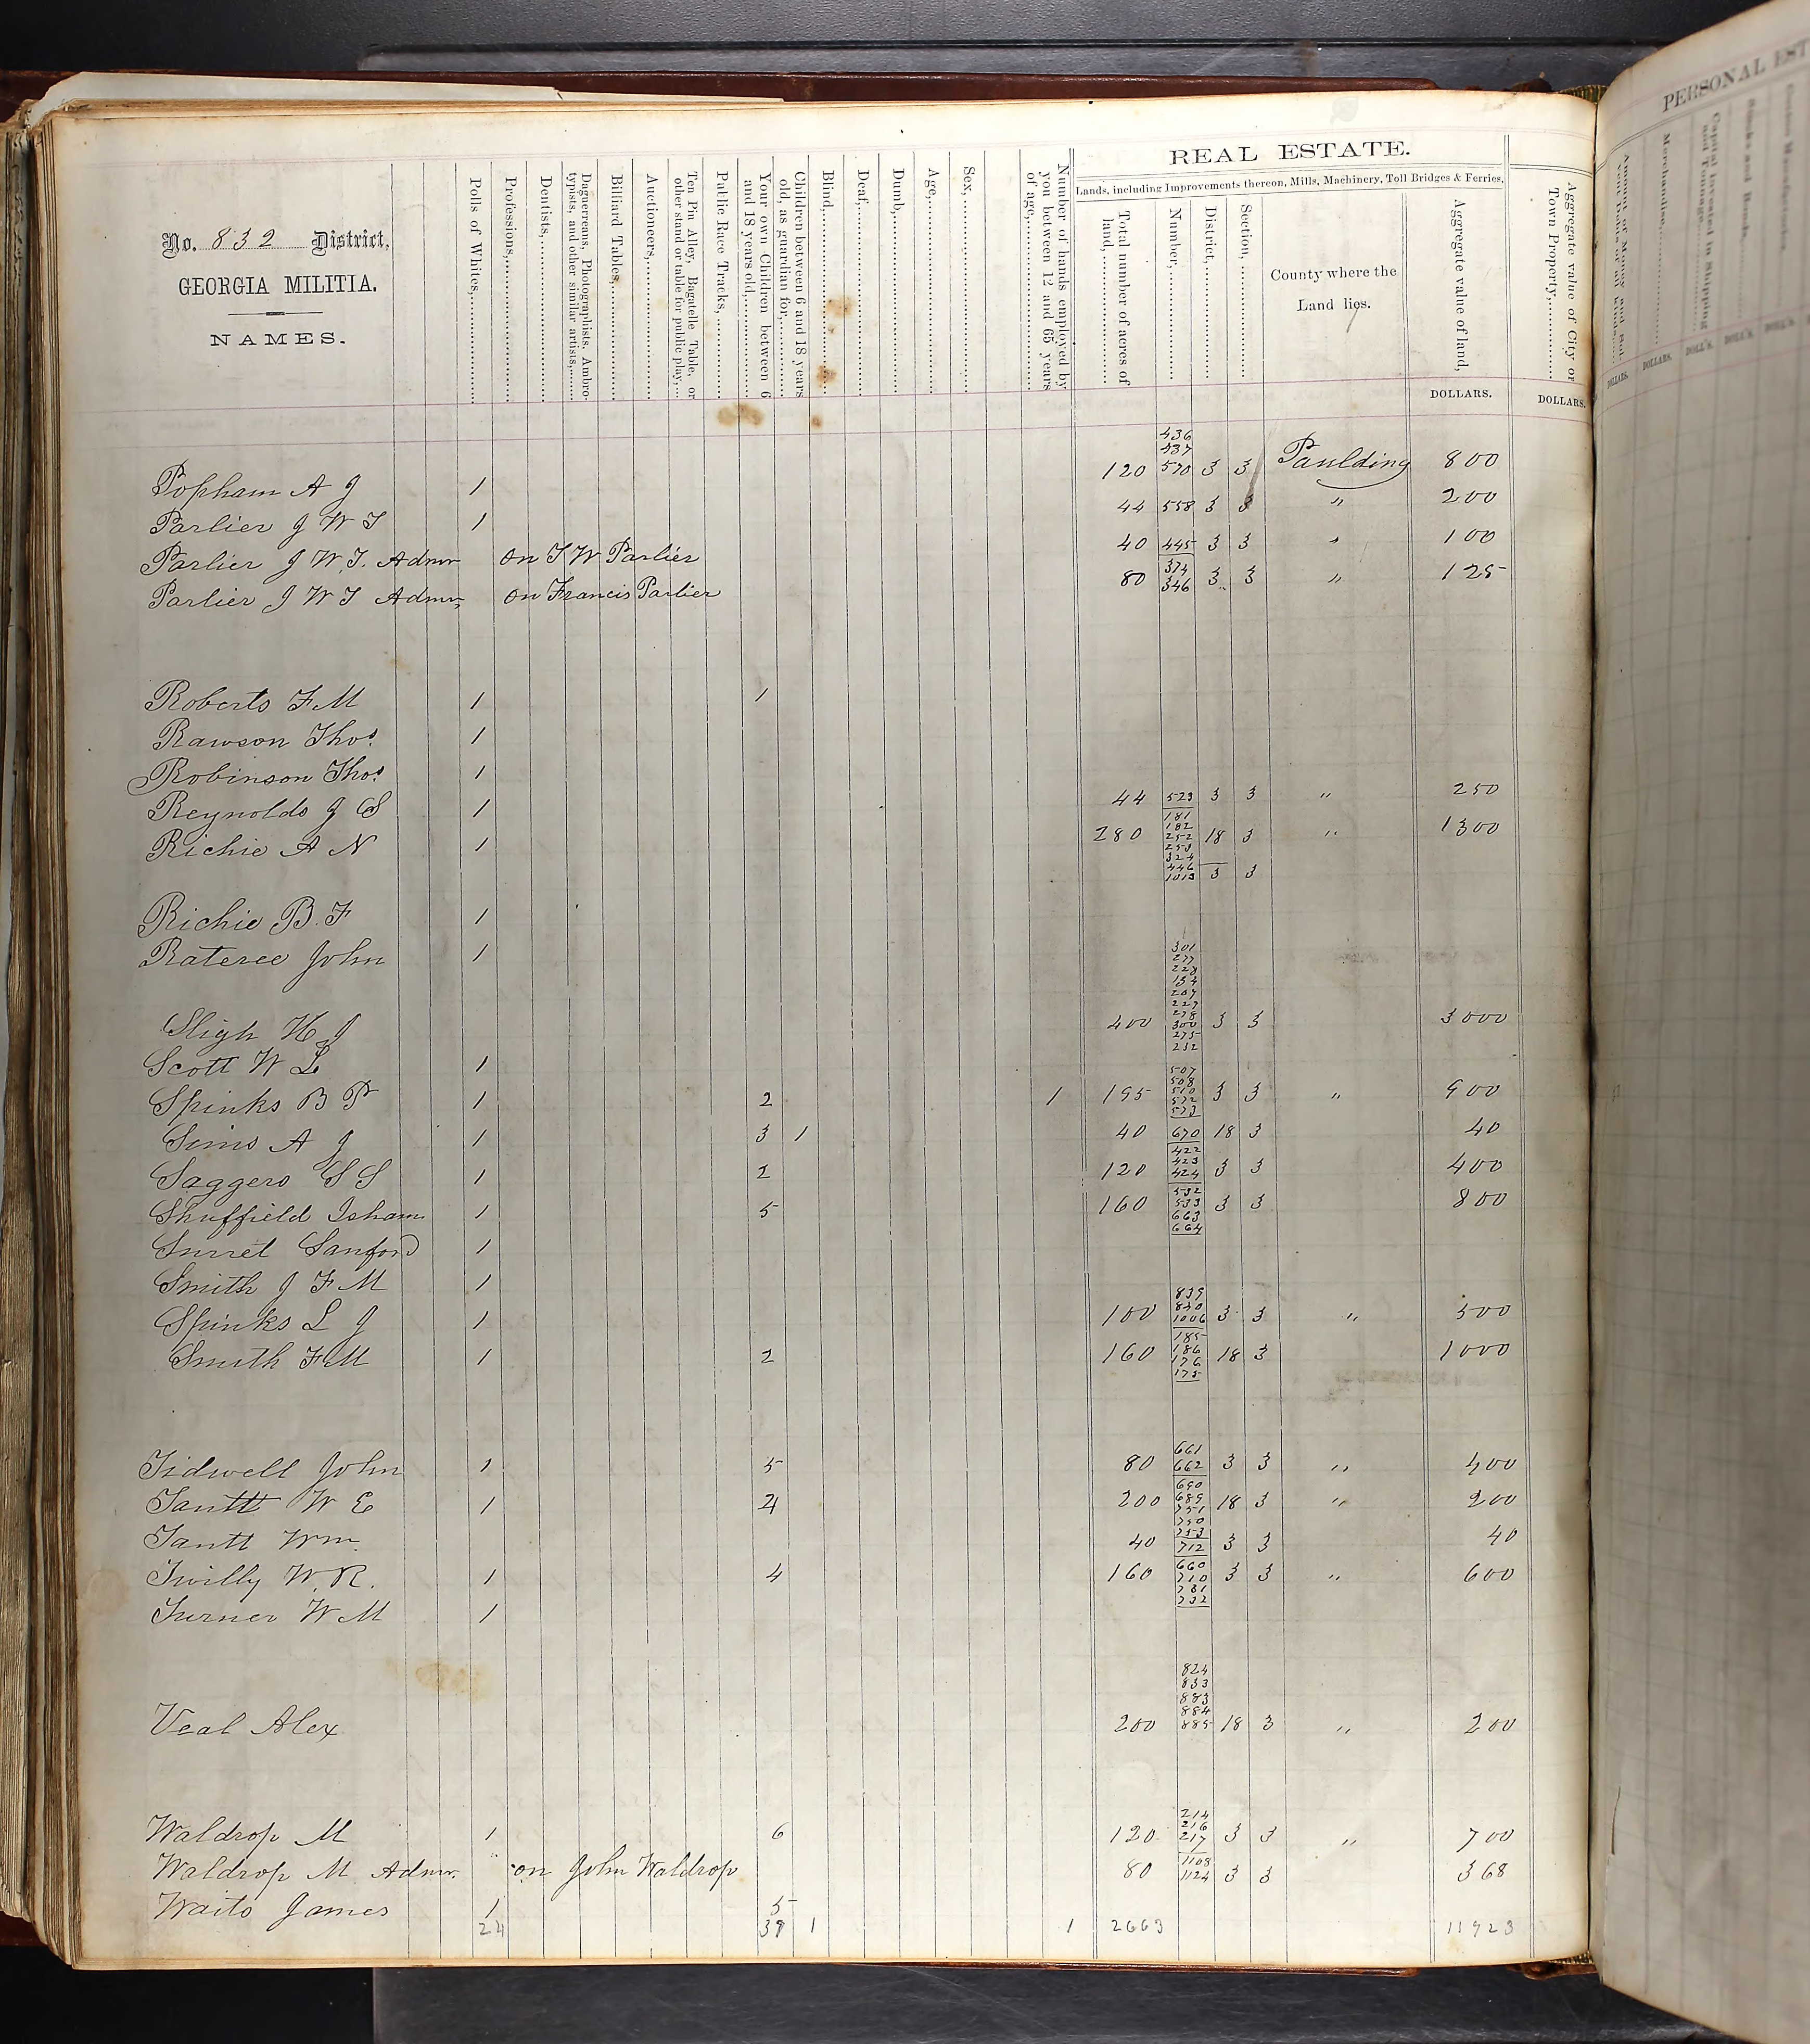 REAL ESTATE.
Lands, including Improvements thereon, Mills, Machinery, Toll Bridges & Ferries,
No. 832 District,
GEORGIA MILITIA.
NAMES.
Polls of Whites,
Professions,
Dentists,
Daguerreans, Photographists, Ambro-
typists, and other similar artists,
Billiard Tables,
Auctioneers,
Ten Pin Alley, Bagatelle Table, or
other stand or table for public play,
Public Race Tracks,
Your own Children between 6
and 18 years old,
Children between 6 and 18 years
old, as guardian for,
Blind,
Deaf,
Dumb,
Age,
Sex,
Number of hands employed by
you between 12 and 65 years
of age,
Total number of acres of
land,
Number,
District,
Section,
County where the
Land lies.
Aggregate value of land,
DOLLARS.
Aggregate value of City or
Town Property,
DOLLARS.
436
437
Popham A J 1 120 570 3 3 Paulding 800
Parlier J W T 1 44 558 3 3 " 200
Parlier J W. T. Admr on T W Parlier 40 445 3 3 " 100
374
Parlier J W T Admr, on Francis Parlier 80 346 3 3 " 125
Roberts F M 1 1
Rawson Thos. 1
Robinson Thos. 1
Reynolds J S 1 44 523 3 3 " 250
181
182
Richie A N 1 280 252 18 3 " 1300
253
324
446
1013 3 3
Richie B. F 1
Rateree John 1
301
277
228
154
207
227
278
Sligh H J 400 300 3 3 3000
275
232
Scott W L 1
507
508
Spinks B P 1 2 1 195 510 3 3 " 900
572
573
Sims A J 1 3 1 40 670 18 3 40
422
423
Saggers S S 1 2 120 424 3 3 400
532
Shuffield Isham 1 5 160 533 3 3 800
663
664
Surret Sanford 1
Smith J F M 1
839
840
Spinks L J 1 100 1006 3 3 " 500
185
186
Smith F M 1 2 160 176 18 3 1000
175
661
Tidwell John 1 5 80 662 3 3 " 400
690
Tantt W E 1 4 200 689 18 3 " 200
751
750
753
Tantt Wm. 40 712 3 3 40
660
Twilly W. R. 1 4 160 710 3 3 " 600
731
732
Turner W M 1
824
833
883
884
Veal Alex 200 885 18 3 " 200
214
216
Waldrop M 1 6 120 217 3 3 " 700
1108
Waldrop M Admr. on John Waldrop 80 1124 3 3 368
Waits James 1 5
24 39 1 1 2663 11923
PERSONAL EST
Amount of Money and Sol-
vent Debts of all kinds,
DOLLARS.
Merchandise,
DOLLARS.
Capital Invested in Shipping
and Tonnage,
DOLL'S.
Stocks and Bonds,
DOLL'S.
DOLL'S.